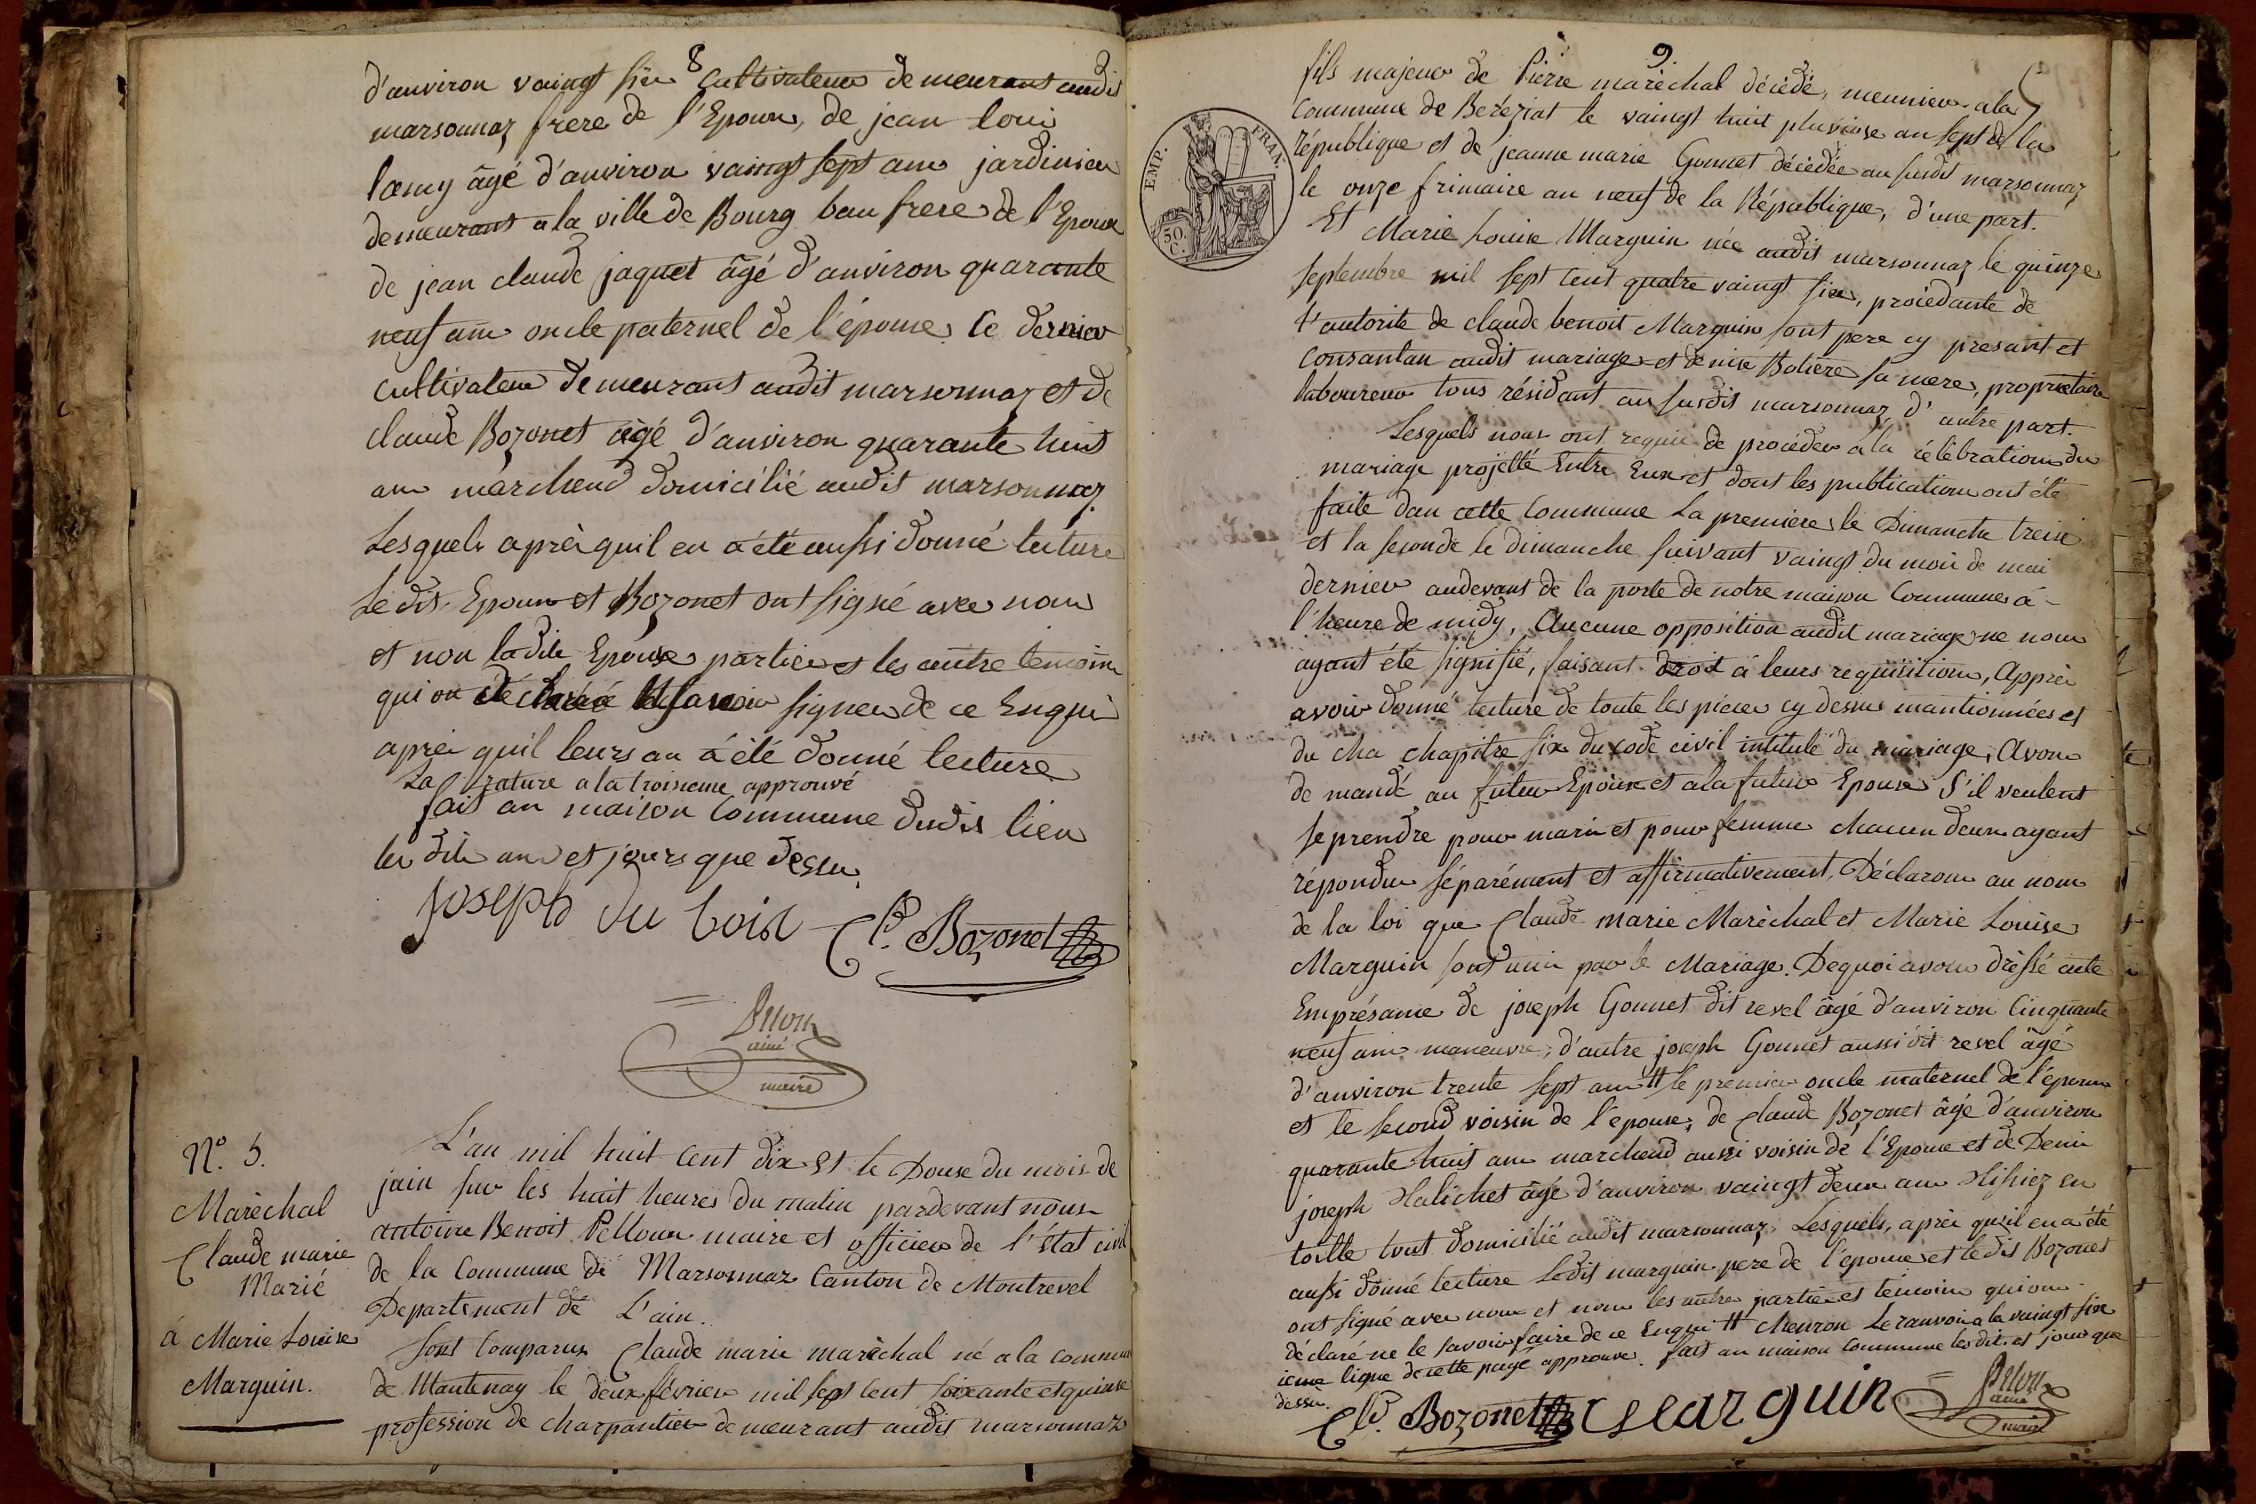 8
d'anviron vaingt six cultivateur demeurant audit
marsonnaz frere de l'Epoux, de jean loui
lamy âgé d'anviron vaingt sept ans jardinier
demeurant a la ville de Bourg bau frere de l'Epoux
de jean claude jaquet âgé d'anviron quarante
neuf ans oncle paternel de l'épouse ce dernier
cultivateur demeurant audit marsonnaz et de
claude Bozonet âgé d'anviron quarante huit
ans marchend domicilié audit marsonnaz.
Lesquels aprèr quil en a été aussi donné lecture
Ledit Epoux et Bozonet ont signé avec nous
et non ladite Epouse partie et les autre temoins
qui on déclaré signer de ce Enqui
aprèr quil leurs an a été donné lecture
La rature a la troisieme approuvé
fait an maison Commune dudit lieu
les dits an et jours que dessu.
joseph du bois Cld. Bozonet
Pellon
ainé
maire
N.o 5.
Maréchal
Claude marie
Marié
á Marie Louise
Marguin.
L'an mil huit cent dix et le Douse du mois de
juin sur les huit heures du matin pardevant nous
antoine Benoit Pelloux maire et officier de l'état civil
de la Commune de Marsonnaz Canton de Montrevel
Departement de L'ain.
Sont Comparus Claude marie maréchal né a la commune
de Mantenay le deux février mil sept cent soixante et quinse
profession de charpantier demeurant audit marsonnaz
9.
fils majeur de Pierre maréchal décédé, meunier a la
Commune de Beréziat le vaingt huit pluviose an sept de la
république et de jeanne marie Gonnet décédée au susdit marsonnaz
le onze frimaire an neuf de la République, d'une part.
EMP. FRAN.
50.
C.
Et Marie Louise Marguin née audit marsonnaz le quinze
septembre mil sept cent quatre vaingt six, procédante de
l'autorité de claude benoit Marguin sont pere cy presant et
consantan audit mariage et denise Botiere sa mere, proprietaire
laboureur tous résidant au susdit marsonnaz d'autre part.
Lesquels nous ont requis de procéder a la célébration du
mariage projetté Entre Eux et dont les publications ont été
faite dan cette Commune La premiere le Dimanche treise
et la seconde le dimanche suivant vaingt du mois de mai
dernier audevant de la porte de notre maison Commune á
l'heure de midy, Aucune opposition audit mariage ne nous
ayant été signifié, faisant droit á leurs requisition, Apprèr
avoir donné lecture de toute les pieces cy dessus mantionnées et
du cha chapitre six du code civil intitulé du mariage, Avons
de mandé au futur Epoux et a la future Epouse S'il veulent
se prendre pour mari et pour femme chacun deux ayant
répondu séparément et affirmativement, Déclarons au nom
de la loi que Claude marie Maréchal et Marie Louise
Marguin sont unis par le Mariage. Dequoi avons dressé acte
Emprésance de joseph Gonnet dit revel âgé d'anviron Cinquante
neuf ans maneuvre; d'autre joseph Gonnet aussi dit revel âgé
d'anviron trente sept ans # le premier oncle maternel de l'époux
et le second voisin de l'épouse; de Claude Bozonet âgé d'anviron
quarante huit ans marchend aussi voisin de l'Epouse et de Denis
joseph Halichet âgé d'anviron vaingt deux ans en
toille tout domicilié audit marsonnaz. Lesquels, aprèr qu'il en a été
aussi donné lecture Ledit marguin pere de l'épouse et ledit Bozonet
ont signé avec nous et non les autre partie et temoins qui on
déclaré ne le savoir faire de ce Enqui # Le ranvoi a la vaingt six
ieme ligne de cette page approuvé. fait an maison Commune les dit et jour que
dessu.
Cld. Bozonet Marguin
Pellon
ainé
maire